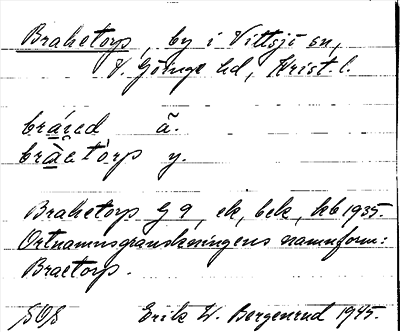 Brahetorp, by i Vittsjö sn,
V. Göinge hd, Krist. l.
bràred ã.
bràetàrp y.
Brahetorp G 9, ek, bek, kb 1935.
Ortnamnsgranskningens namnform:
Braetorp.
Erik W. Bergenrud 1945.